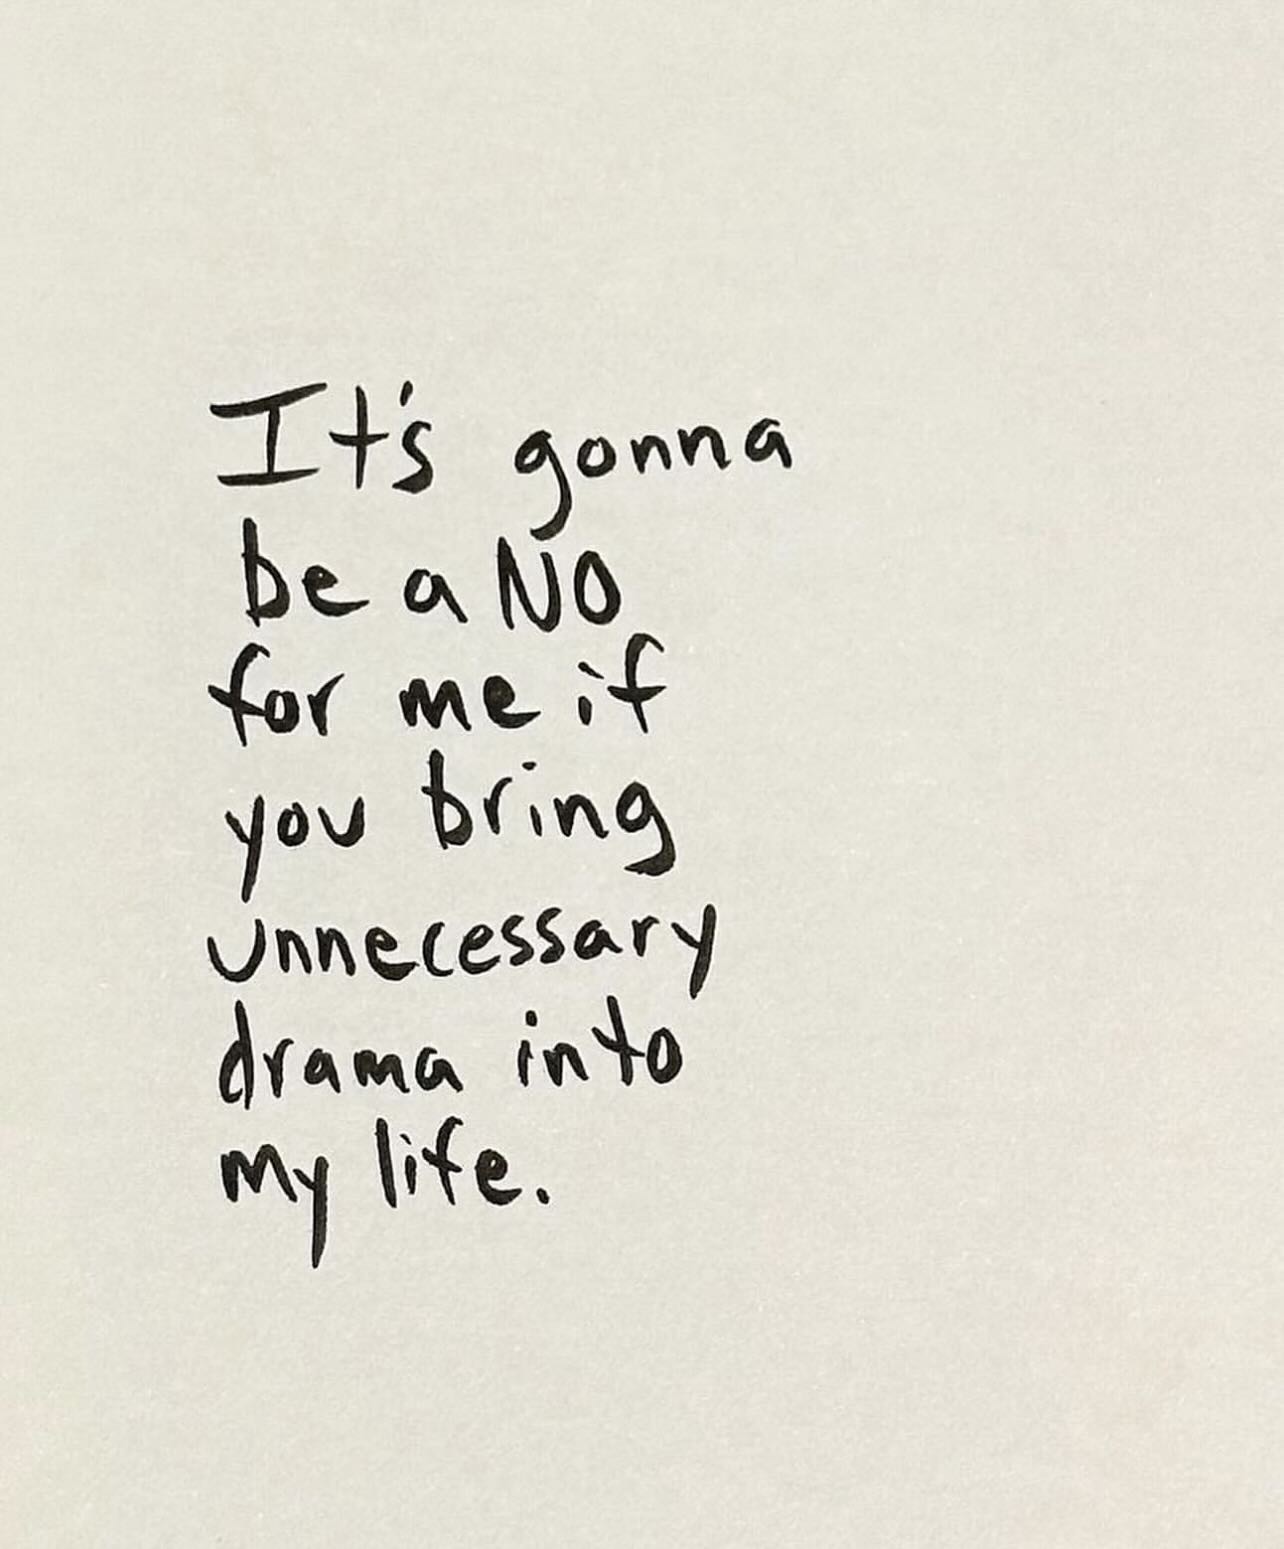 It's gonna
be a NO
for me if
you bring
unnecessary
drama into
my life.